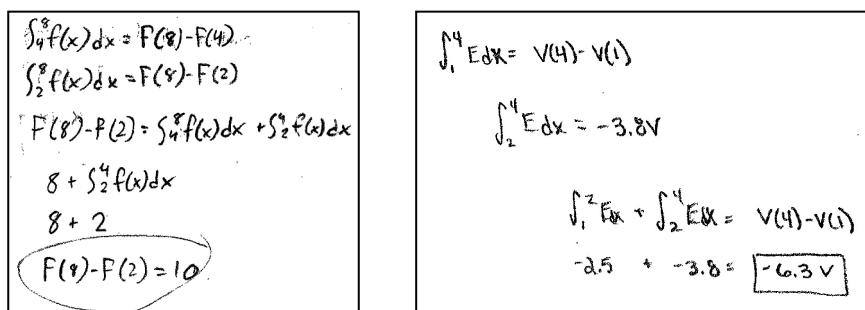 ∫₄⁸ f(x)dx = F(8)-F(4)
∫₂⁸ f(x)dx = F(8)-F(2)
F(8)-F(2) = ∫₄⁸ f(x)dx + ∫₂⁴ f(x)dx
8 + ∫₂⁴ f(x)dx
8 + 2
F(8)-F(2) = 10
∫₁⁴ Edx = V(4)-V(1)
∫₂⁴ Edx = -3.8V
∫₁² Edx + ∫₂⁴ Edx = V(4)-V(1)
-2.5 + -3.8 = -6.3 V